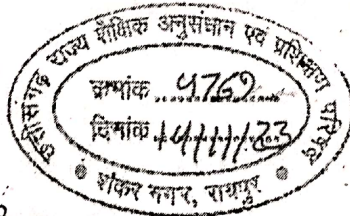 छत्तीसगढ़ राज्य शैक्षिक अनुसंधान एवं प्रशिक्षण परिषद
क्रमांक 4769
दिनांक 14/11/23
शंकर नगर, रायपुर